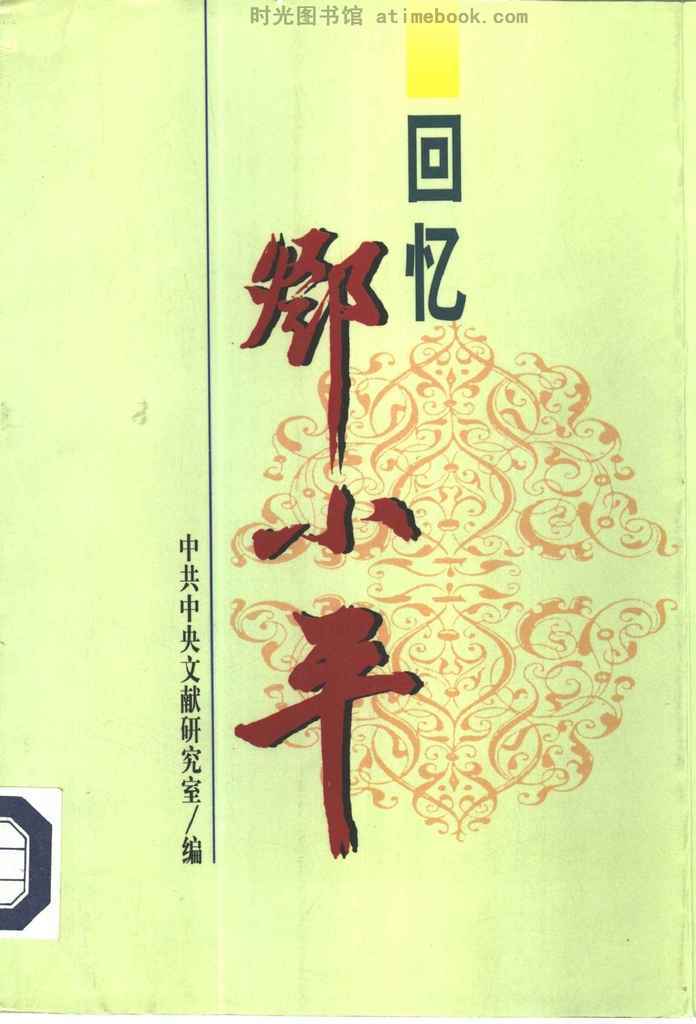 时光图书馆 atimebook.com
回忆
邓小平
中共中央文献研究室/编